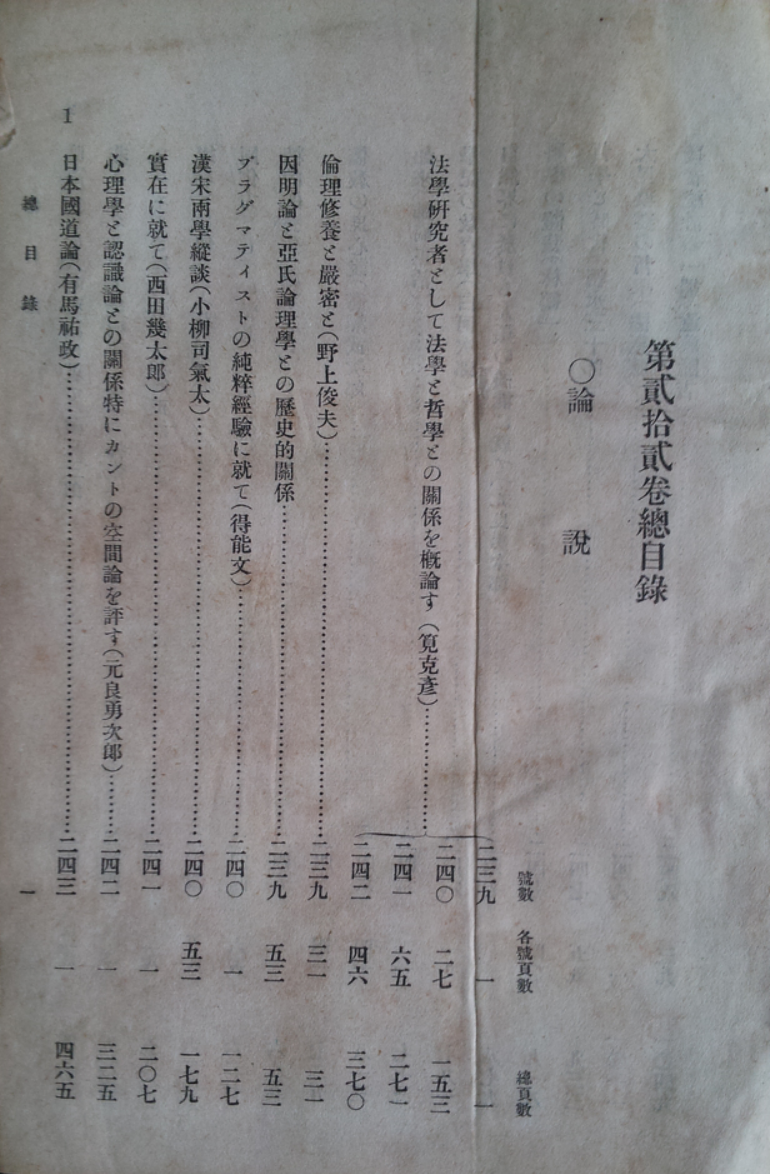 第貳拾貳卷總目錄
〇論　說
號數　各號頁數　總頁數
法學硏究者として法學と哲學との關係を槪論す（筧克彥）
二三九　一　一
二四〇　二七　一五三
二四一　六五　二七一
二四二　四六　三七〇
倫理修養と嚴密と（野上俊夫）二三九　三一　三一
因明論と亞氏論理學との歷史的關係二三九　五三　五三
プラグマティストの純粹經驗に就て（得能文）二四〇　一　一二七
漢宋兩學縱談（小柳司氣太）二四〇　五三　一七九
實在に就て（西田幾太郞）二四一　一　二〇七
心理學と認識論との關係特にカントの空間論を評す（元良勇次郞）二四二　一　三二五
日本國道論（有馬祐政）二四三　一　四六五
總目錄　一
1